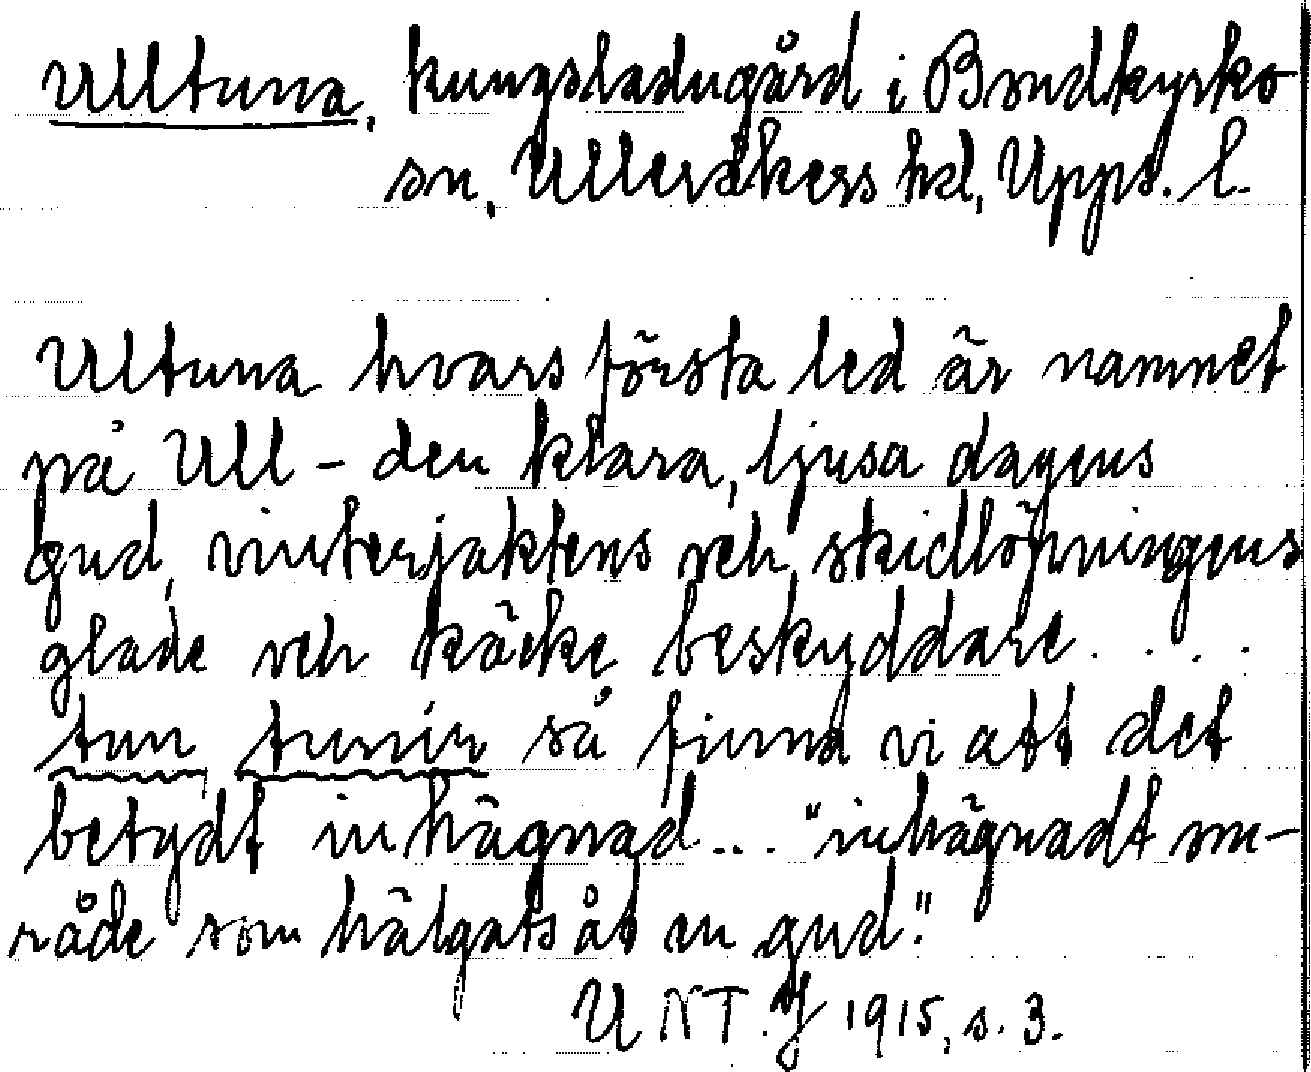 Ulltuna, kungsladugård i Bondkyrko
sn, Ulleråkers hd, Upps. l.
Ultuna hvars första led är namnet
på Ull - den klara, ljusa dagens
gud, vinterjaktens och skidlöpningens
glade och käcke beskyddare . . . .
tun, tunir så finna vi att det
betydt inhägnad... "inhägnadt om-
råde som hälgats åt en gud."
UNT. J 1915, s. 3.